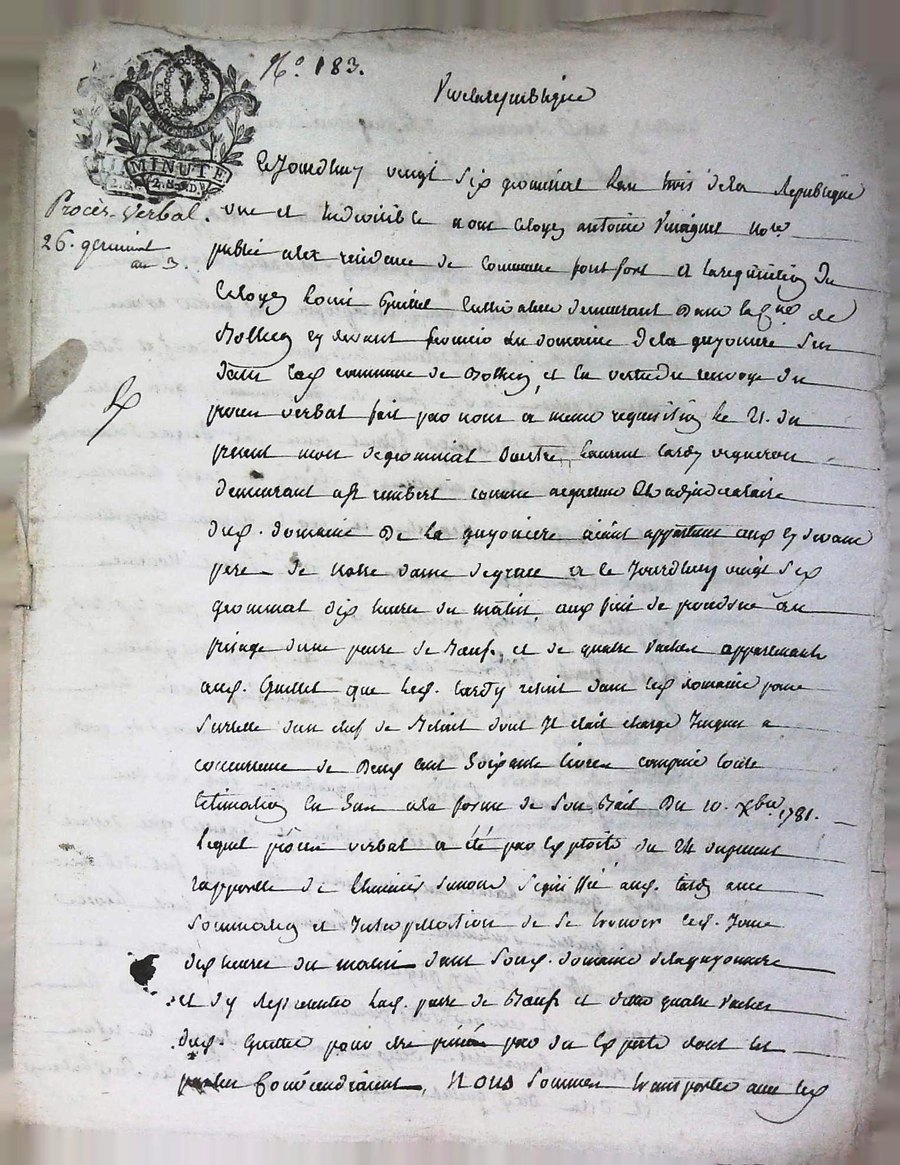 N.º 183.
Vive la république
MINUTE
2.S. 2.S. D.
Procès-Verbal.
26. germinal
an 3.
Cejourdhuy vingt six germinal lan trois dela Republique
une et Indivisible nous citoyen antoine nore
public ala residence de commune fontfort a la requisition du
Citoyen Louis Guillet Cultivateur demeurant dans la Cne de
cy devant du domaine dela guyoniere sur
dans lad commune de et en vertu du renvoy du
proces verbal fait par nous a meme requisition le 21. du
present mois degerminal dentre laurent tardy vigneron
demeurant a St rembert comme acquereur et adjudicataire
dud. domaine de la guyoniere aiant appartenu aux cy devant
pere de notre dame degrace a ce Jourdhuy vingt six
germinal dix heures du matin aux fins de prendre au
prisage dune paire de Bœufs et de quatre vaches appartenants
aud. Guillet que led. tardy retint dans led domaine pour
surette dun chef de Betail dont Il etait chargé Jusques a
concurrence de Deux cent soixante livres compris toute
Estimation en la forme de son Bail du 10. Xbre 1781.
Lequel procès verbal a été par Exploit du 24 du present
rapporté de signiffié aud. tardy avec
Sommation et Interpellation de se trouver led. Jour
dix heures du matin dans soud. domaine delaguyoniere
et dy Representer lad. paire de Bœufs et dittes quatre vaches
dud. Guillet pour etre par des Experts dont les
parties Conviendraient, Nous sommes transportés avec led